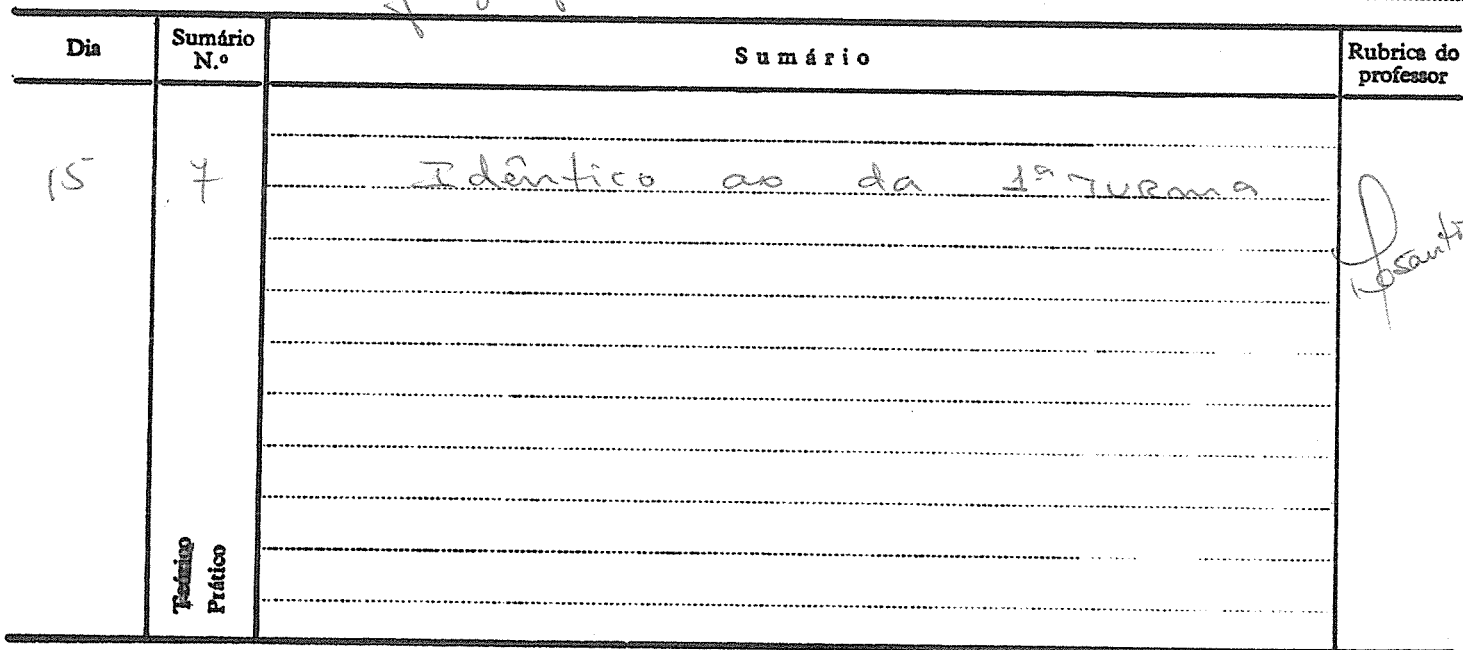 Dia
Sumário
N.º
Sumário
Rubrica do
professor
15 7 Idêntico ao da 1ª Turma
Teórico
Prático